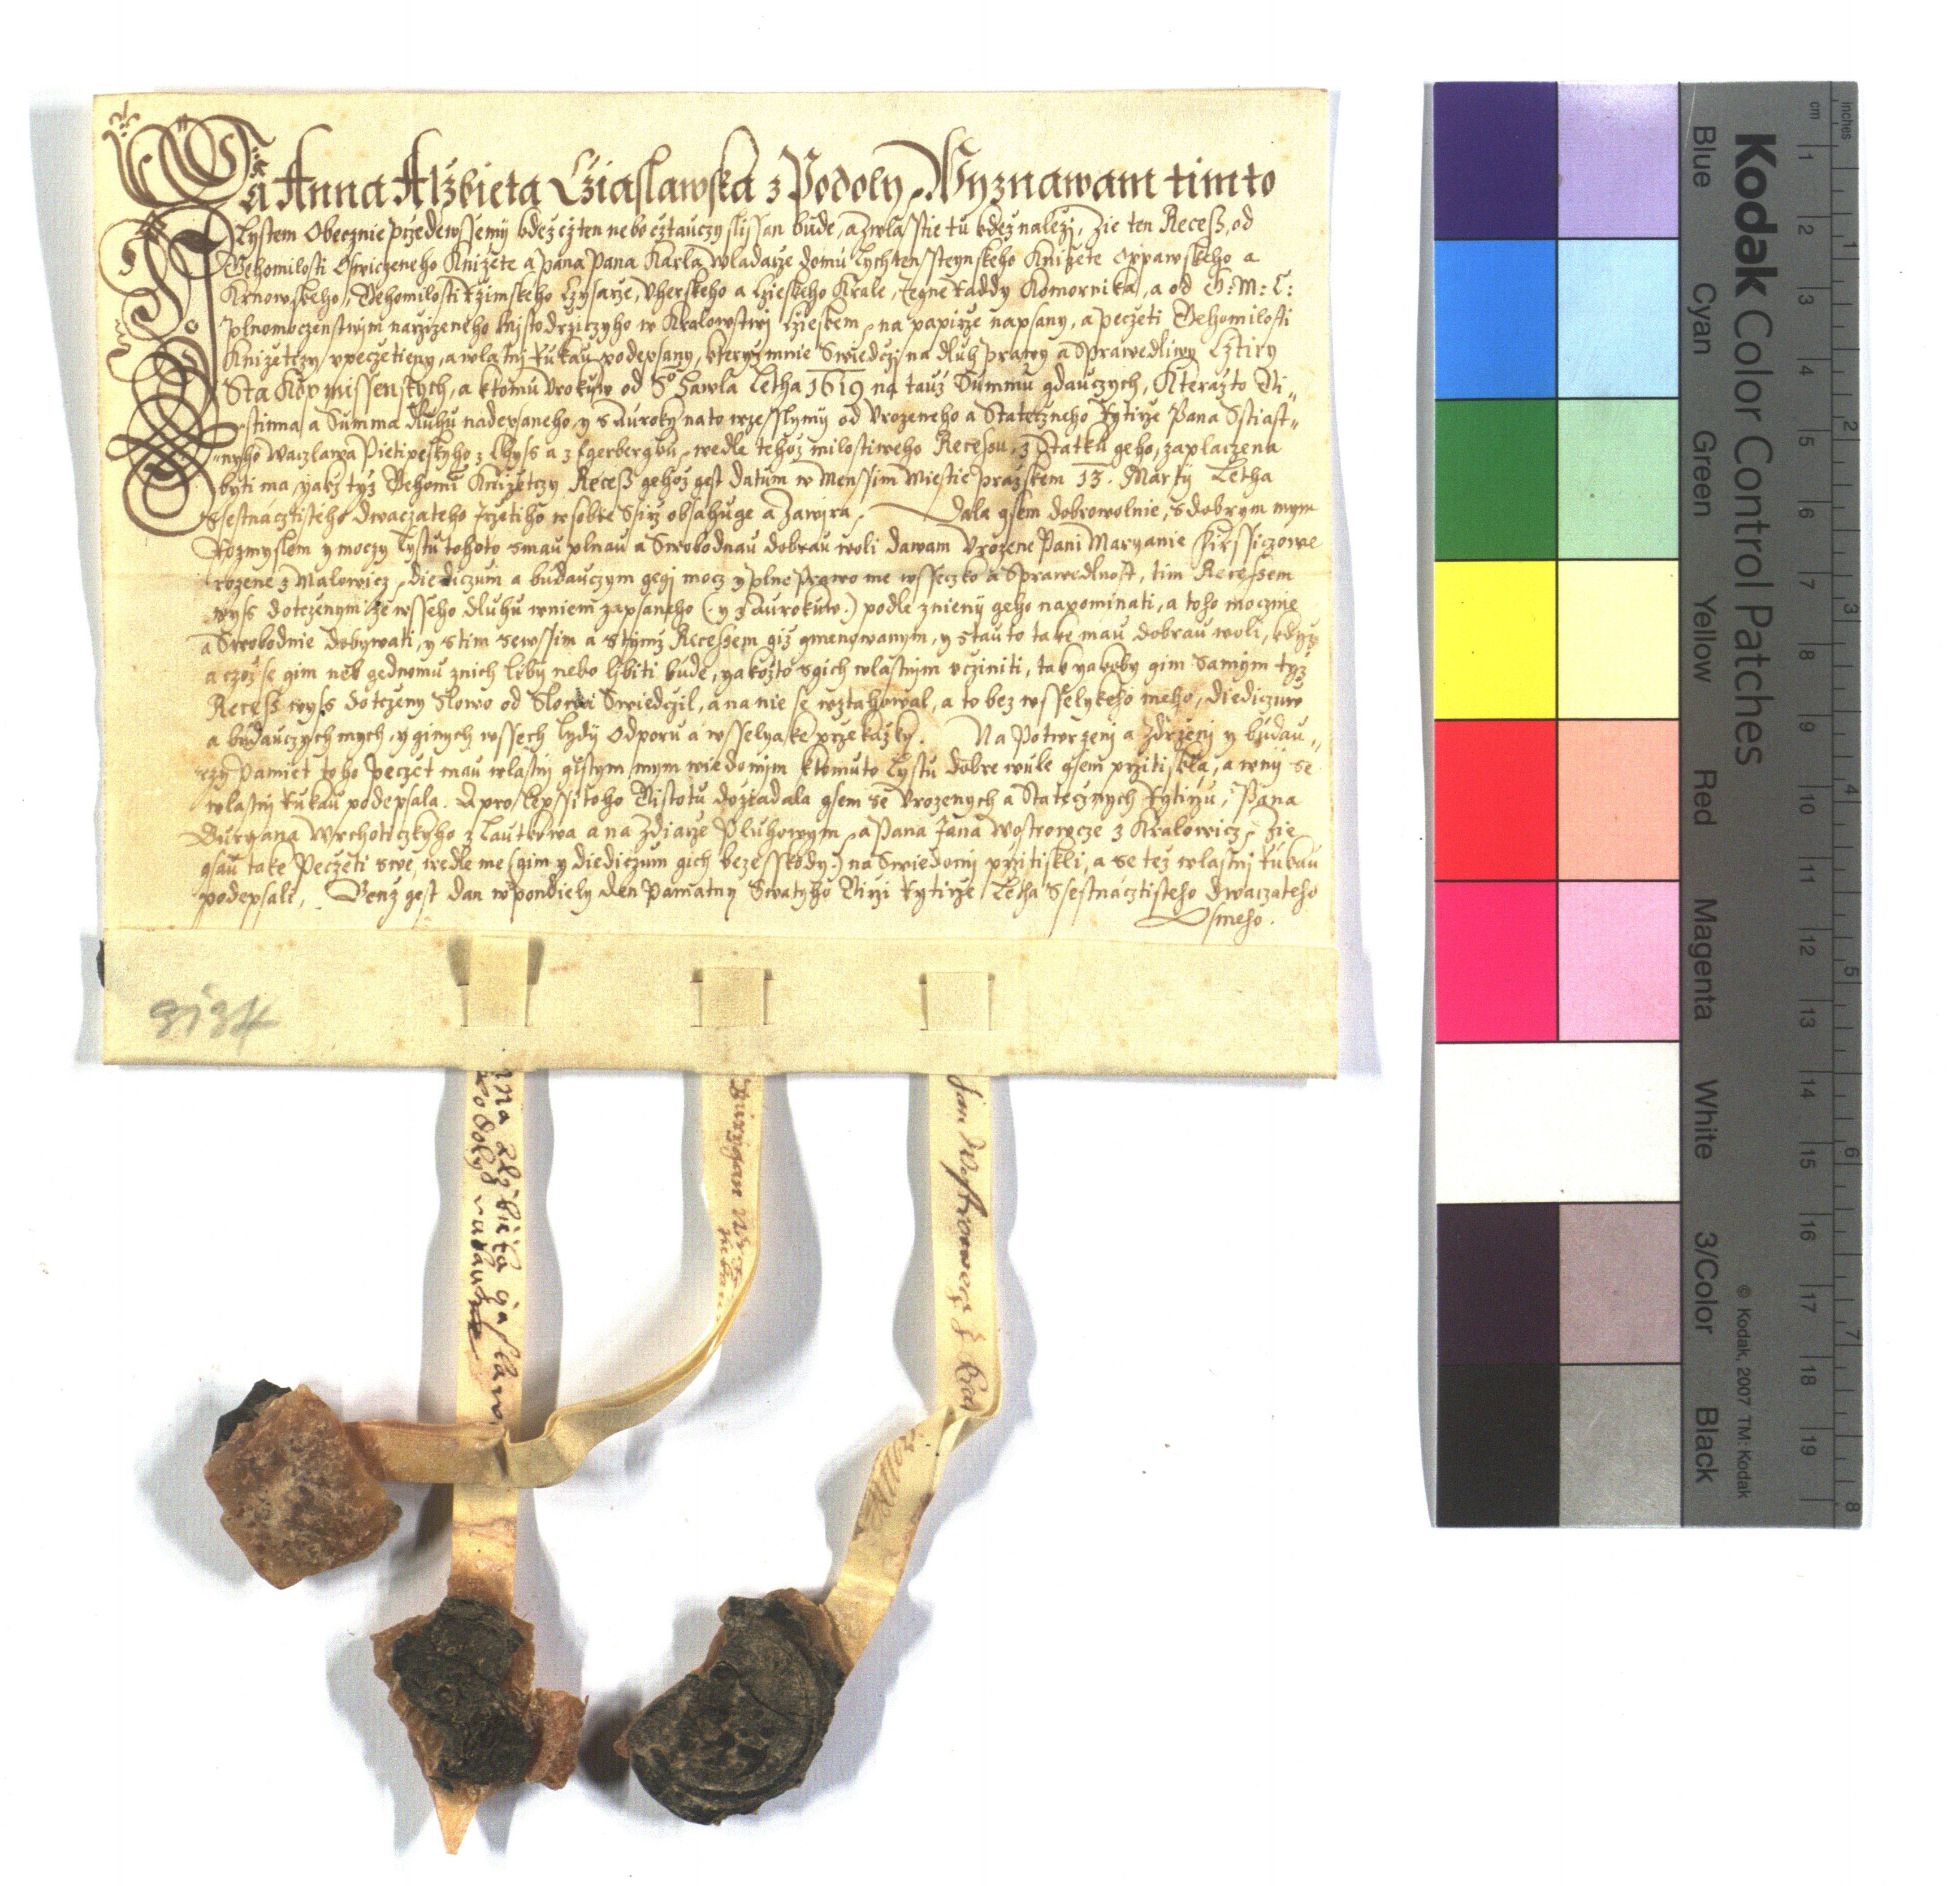 Ja Anna Alžbieta Cžiaslawska z Podoly Wyznawam timto
Lystem Obecznie przedewssemy kdež cžten nebo cztauczy slissan bude, a zwlasstie tu kdež naleži, Zie ten Recess, od
Gehomilosti Oswiczeneho Knižete a pana Pana Karla wladarze domu Lychtensteynskeho Knižete Oppawskeho a
Krnowskeho, Gehomilosti Rzimskeho Czysarze, Vherskeho a Cžieskeho Krale, Tegne Raddy Komornika, a od G: M: C:
plnomoczenstwim narzizeneho mistodrziczyho w Kralowstwj Cžieskem, na papirze napsany, a peczeti Gehomilosti
Knižetczy vpeczetieny, a wlastnj Rukau podepsany, kteryž mnie Swiedczj na dluh prawy a Sprawedliwy Cžtiry
Sta Kop missenskych, a ktomu Vrokuw od So Hawla Letha 1619 na tauž Summu gdauczych, Kteražto Gi„
stinna a Summa dluhu nadepsaneho, y s aurokij nato wzesslymij od Vrozeneho a Statecžneho Rytirze Pana Sstiast„
„nyho Waczlawa Pietipeskyho z Chyss a z Egerbergku, wedle tehož milostiweho Recessu, z Statku geho, zaplaczena
byti ma, yakž tyž Gehomi Knižetczy Recess gehož gest datum w Menssim Miestie pražskem 13. Martij Letha
Ssestnacztisteho dwaczateho Trzetiho w sobie Sirz obsahuge a Zawira. Dala gsem dobrowolnie, s dobrym mym
Rozmyslem y moczy Lystu tohoto s mau plnau a Swobodnau dobrau woli dawam Vrozene Pani Maryanie Hirssiczowe
rozene z Malowicz, diediczum a budauczym gegj mocz y plne prawo me wsseczko a Sprawedlnost, tim Recessem
wyss dotczenym ze wsseho dluhu wniem zapsaneho (: y z aurokuw :) podle znienij geho napominati, a toho mocznie
a Swobodnie dobywati, y s tim sewssim a s tymž Recessem giž gmenowanym, y s tauto take mau dobrau woli, když
a czož se gim neb gednomu znich liby nebo ljbiti bude, yakožto s gich wlastnim vcziniti, tak yakoby gim Samým tyž
Recess wyss dotczeny Slowo od Slowa Swiedczil, a na nie se wztahowal, a to bez wsselykeho meho, diediczuw
a budauczych mych, y ginych wssech lydij Odporu a wsselyake przekažky. Na Potwrzenj a zdrženj y budau„
„czy Pamiet toho peczet mau wlastnj gistym mym wiedomim ktomuto Lystu dobre wule gsem przitiskla, a w nij se
wlastnj Rukau podepsala. A pro lepssi toho Gistotu dožiadala gsem se Vrozenych a Statecžnych Rytirzu, Pana
Buryana Wrchoticzkyho z Lautkowa a na Zdiarze Pluhowym, a Pana Jana Wostrowcze z Kralowicz, Zie
gsau take Peczeti swe, wedle me (: gim y diediczum gich beze sskody :) na Swiedomj przitiskli, a se tež wlastnj Rukau
podepsali, Genž gest dan w pondiely den Pamatny Swatyho Girzi Rytirze Letha Ssestnacztisteho dwaczateho
Osmeho.
Anna alžbieta cžaslaws
Jan Wostrowecz z Kral
Kodak Color Control Patches
© Kodak, 2007 TM: Kodak
Blue Cyan Green Yellow Red Magenta White 3/Color Black
cm 1 2 3 4 5 6 7 8 9 10 11 12 13 14 15 16 17 18 19
inches 1 2 3 4 5 6 7 8